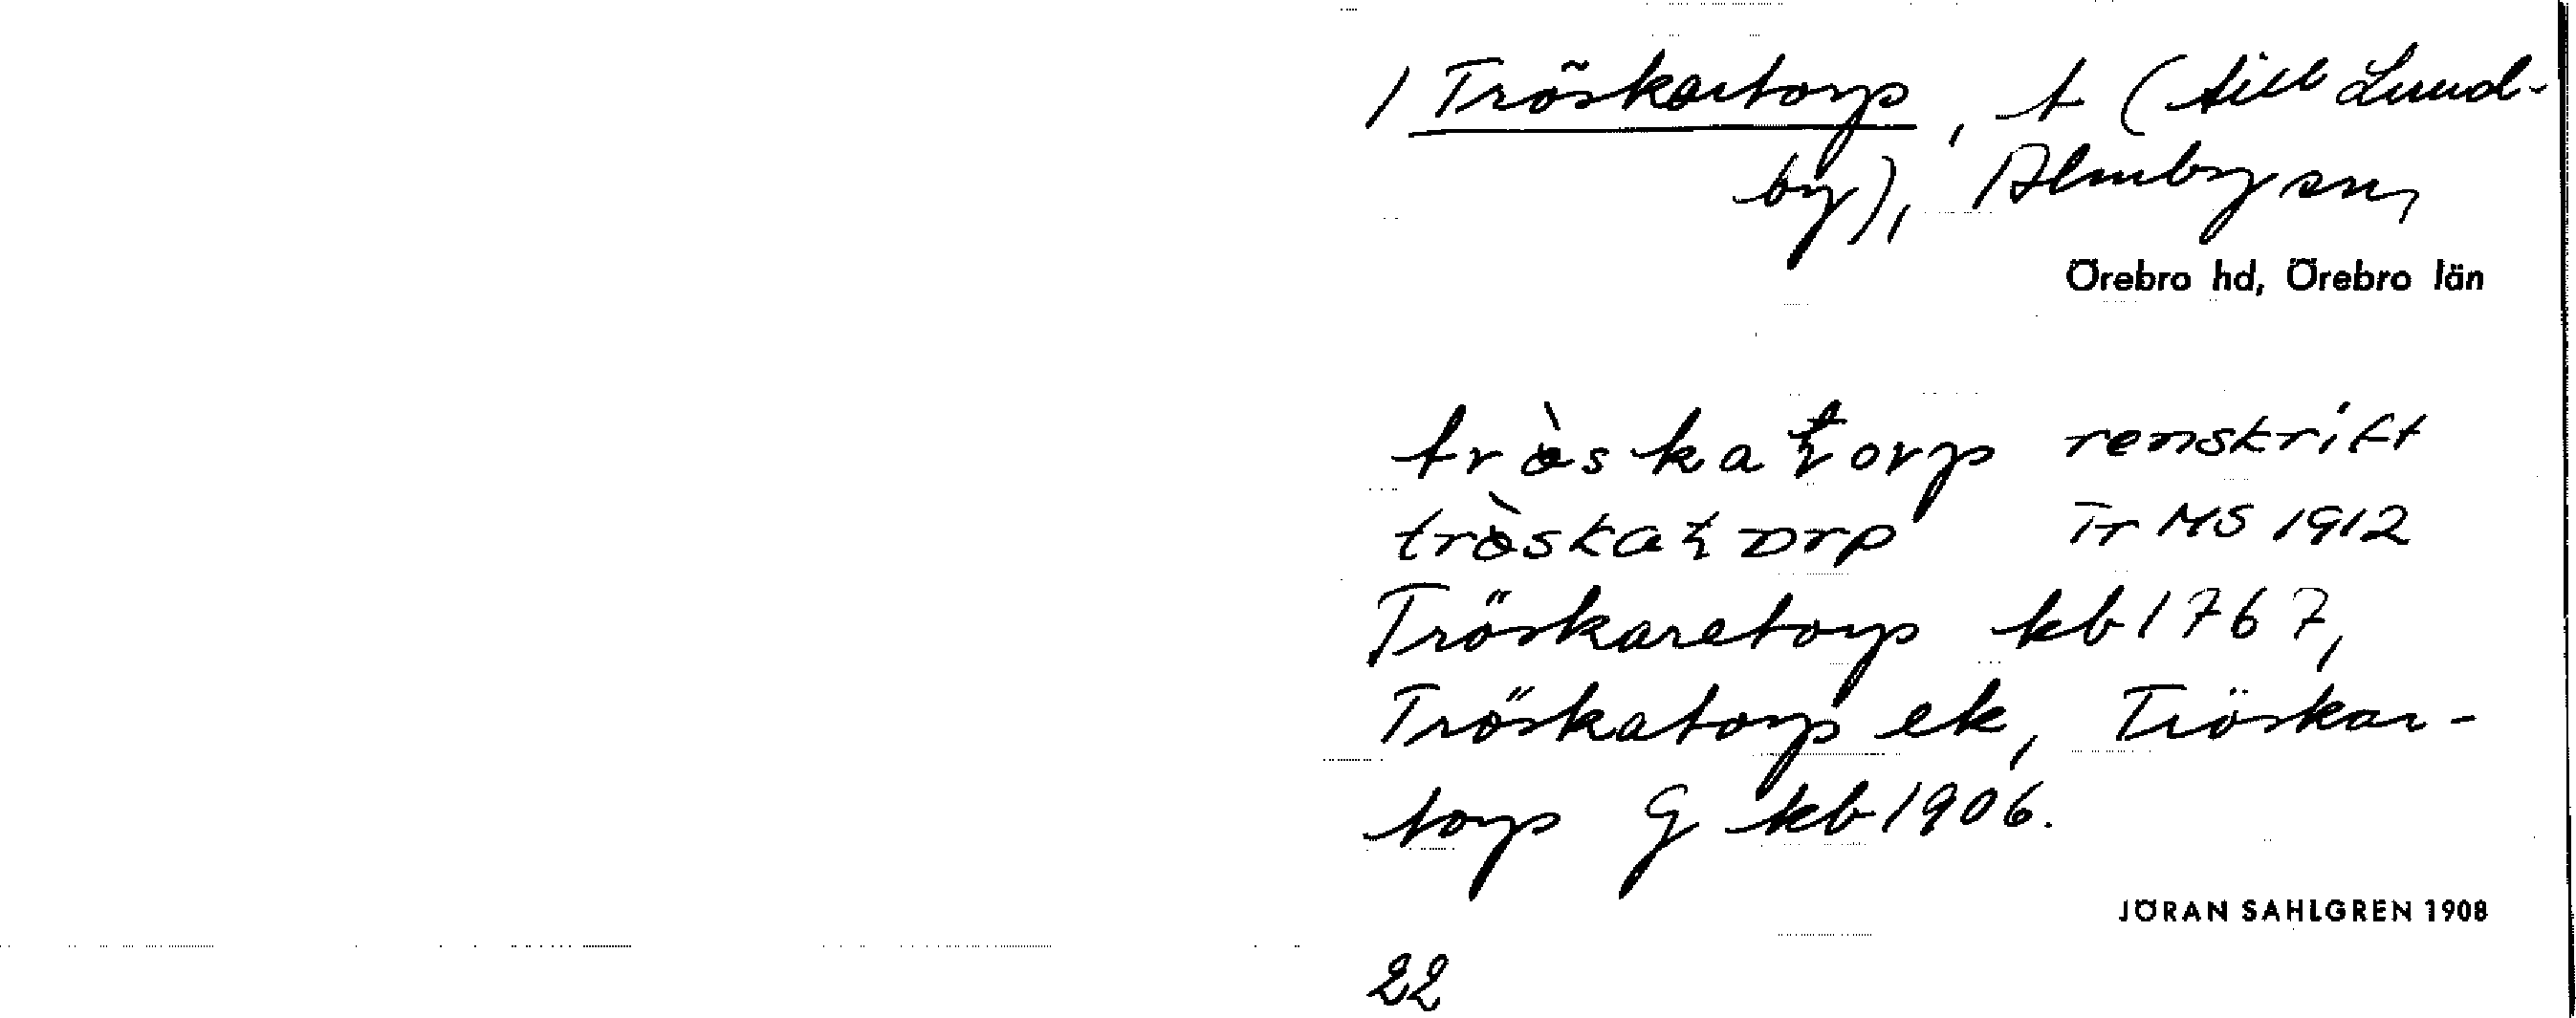 / Tröskartorp, t (till Lund-
by), Almby sn,
Örebro hd, Örebro län
renskrift
Tr MS 1912
Tröskaretorp kb 1767,
Tröskatorp ek, Tröskar-
torp G kb 1906.
JÖRAN SAHLGREN 1908
22